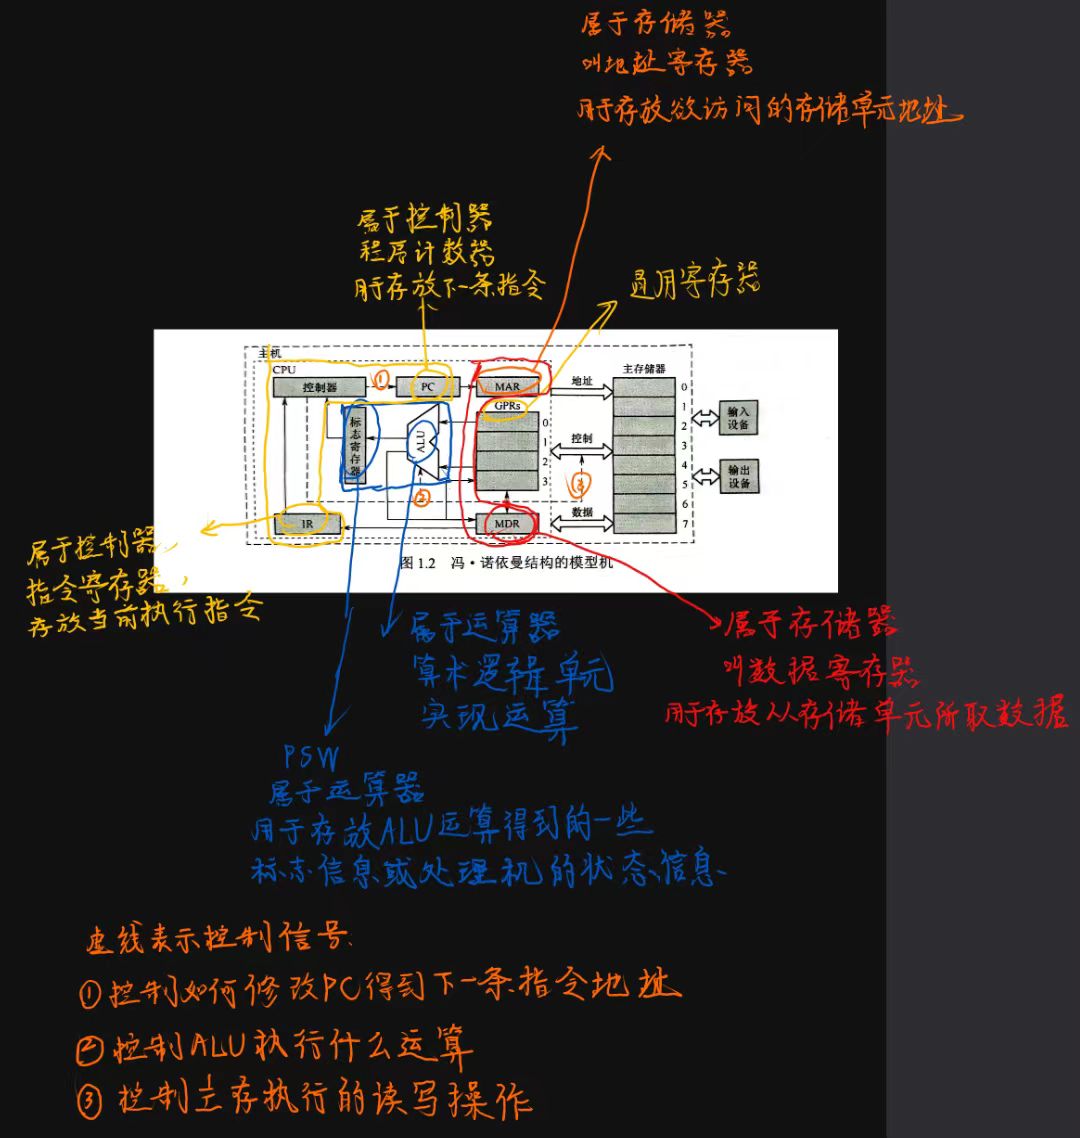 属于存储器
叫地址寄存器
用于存放欲访问的存储单元地址
属于控制器
程序计数器
用于存放下一条指令
通用寄存器
主机
CPU
控制器
①
PC
MAR
地址
主存储器
GPRs
标志寄存器
ALU
②
0
1
2
3
控制
③
0
1
2
3
4
5
6
7
输入设备
输出设备
IR
MDR
数据
图 1.2 冯·诺依曼结构的模型机
属于控制器,
指令寄存器,
存放当前执行指令
属于运算器
算术逻辑单元
实现运算
属于存储器
叫数据寄存器
用于存放从存储单元所取数据
PSW
属于运算器
用于存放ALU运算得到的一些
标志信息或处理机的状态信息
虚线表示控制信号
①控制如何修改PC得到下一条指令地址
②控制ALU执行什么运算
③控制主存执行的读写操作